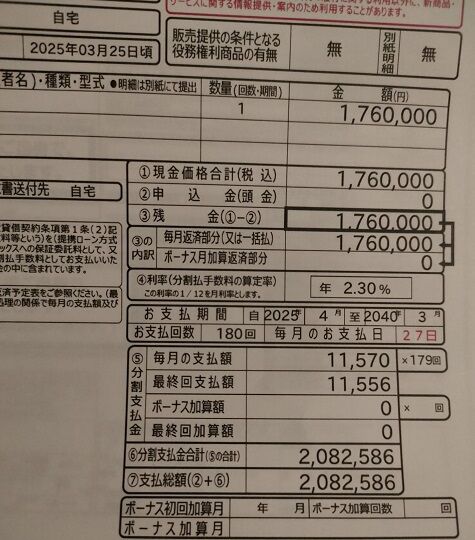 サービスに関する情報提供・案内のため利用することがあります。
自宅
2025年03月25日頃
販売提供の条件となる
役務権利商品の有無
無
別紙明細
無
者名)・種類・型式 ●明細は別紙にて提出
数量(回数・期間)
金 額(円)
1
1,760,000
①現金価格合計(税込)
1,760,000
②申込金(頭金)
0
書送付先 自宅
③残 金(①-②)
1,760,000
③の内訳
毎月返済部分(又は一括払)
1,760,000
ボーナス月加算返済部分
0
賃借契約条項第1条(2)記
料等という)を(提携ローン方式
ックスへの保証委託料として、又
割払手数料としてお支払いいた
金の中に含まれています。
④利率(分割払手数料の算定率)
この利率の1/12を月利率とします。
年 2.30%
済予定表をご参照ください。(最
処理の関係で毎月の支払額及び
お支払期間
自2025年 4月 至2040年 3月
お支払回数 180回
毎月のお支払日 27日
⑤分割支払金
毎月の支払額
11,570
×179回
最終回支払額
11,556
ボーナス加算額
0
× 回
最終回加算額
0
⑥分割支払金合計(⑤の合計)
2,082,586
⑦支払総額(②+⑥)
2,082,586
ボーナス初回加算月
年 月
ボーナス加算回数
回
ボーナス加算月